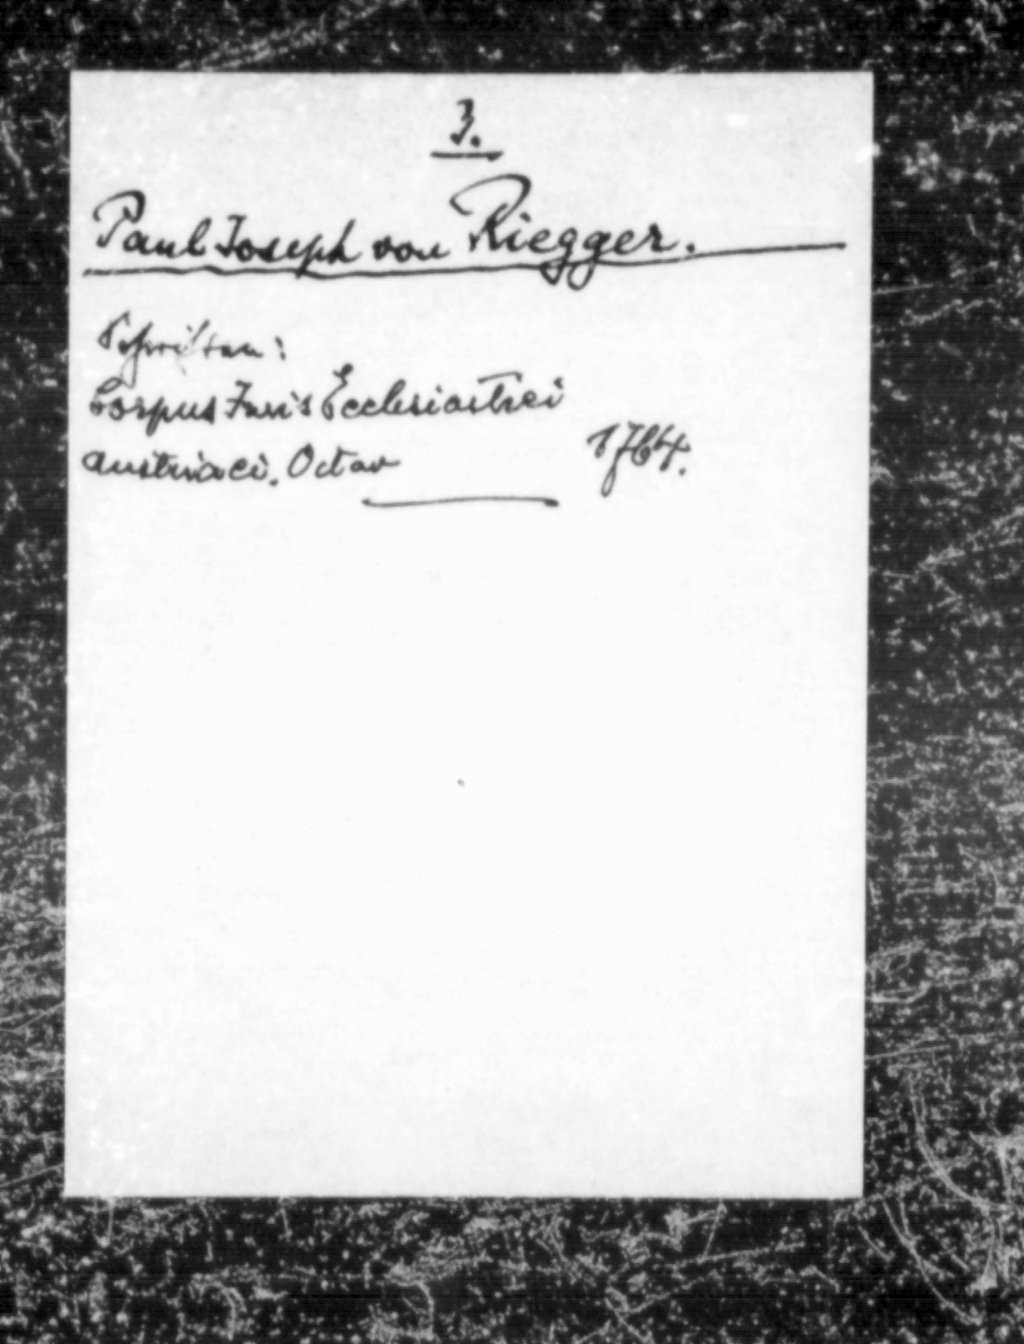 3.
Paul Joseph von Riegger.
Schriften:
Corpus Juris Ecclesiastici
austriaci. Octav 1764.